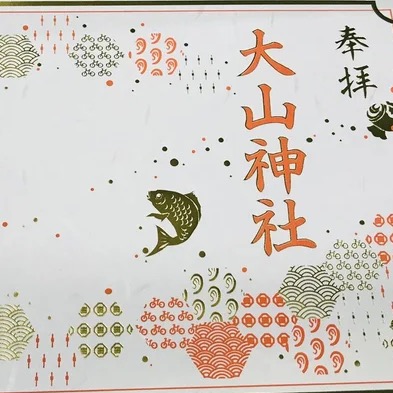 奉拝
大山神社